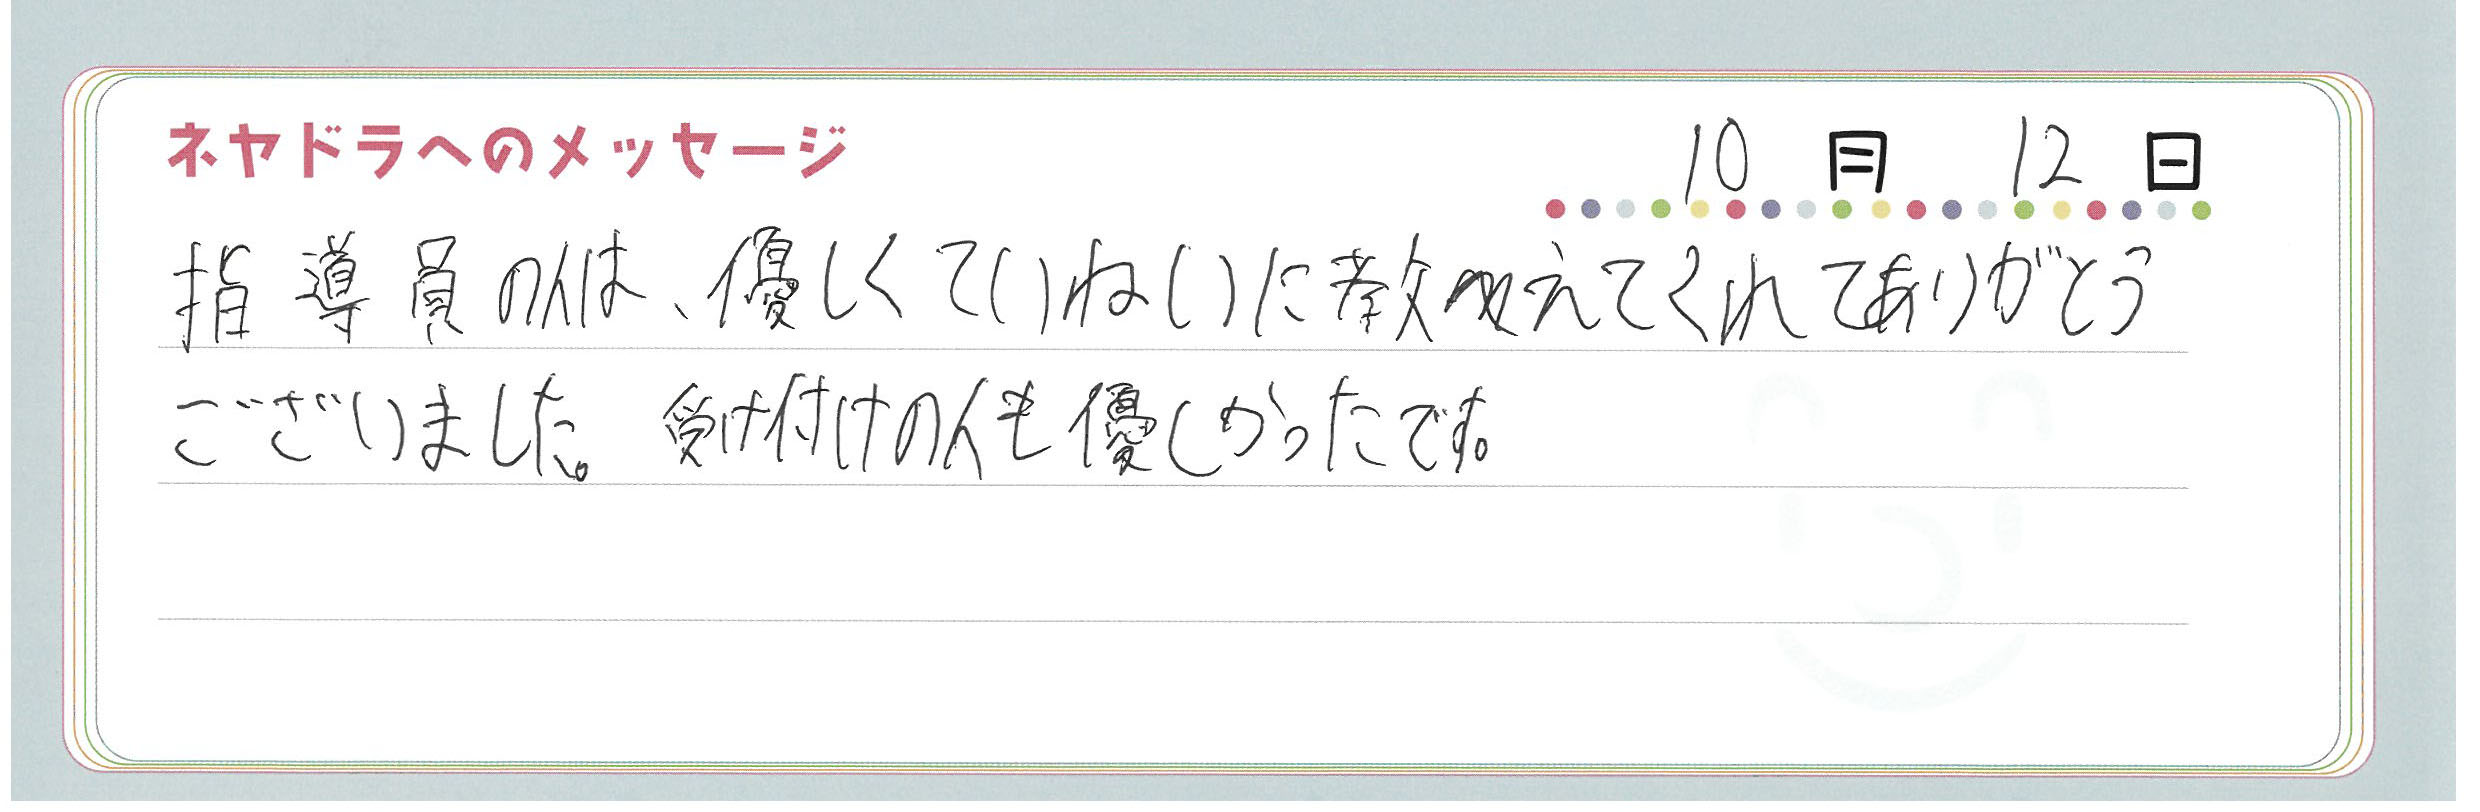 ネヤドラへのメッセージ
10月 12日
指導員の人は、優しくていねいに教えてくれてありがとう
ございました。受け付けの人も優しかったです。